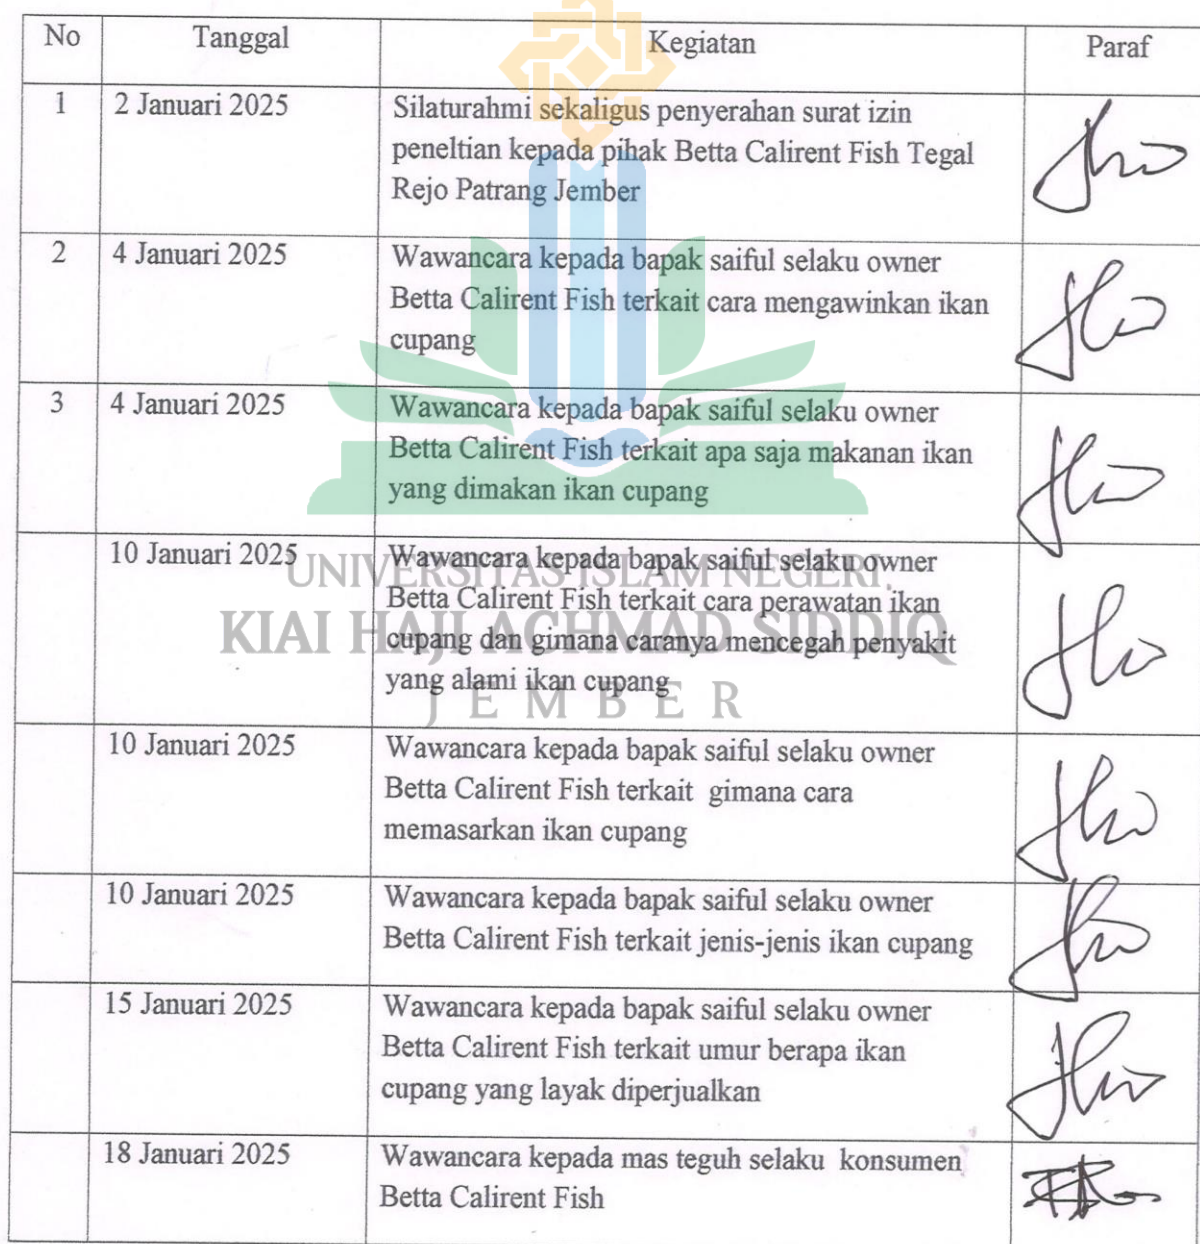 No Tanggal Kegiatan Paraf
1 2 Januari 2025 Silaturahmi sekaligus penyerahan surat izin
peneltian kepada pihak Betta Calirent Fish Tegal
Rejo Patrang Jember
2 4 Januari 2025 Wawancara kepada bapak saiful selaku owner
Betta Calirent Fish terkait cara mengawinkan ikan
cupang
3 4 Januari 2025 Wawancara kepada bapak saiful selaku owner
Betta Calirent Fish terkait apa saja makanan ikan
yang dimakan ikan cupang
10 Januari 2025 Wawancara kepada bapak saiful selaku owner
Betta Calirent Fish terkait cara perawatan ikan
cupang dan gimana caranya mencegah penyakit
yang alami ikan cupang
UNIVERSITAS ISLAM NEGERI
KIAI HAJI ACHMAD SIDDIQ
JEMBER
10 Januari 2025 Wawancara kepada bapak saiful selaku owner
Betta Calirent Fish terkait gimana cara
memasarkan ikan cupang
10 Januari 2025 Wawancara kepada bapak saiful selaku owner
Betta Calirent Fish terkait jenis-jenis ikan cupang
15 Januari 2025 Wawancara kepada bapak saiful selaku owner
Betta Calirent Fish terkait umur berapa ikan
cupang yang layak diperjualkan
18 Januari 2025 Wawancara kepada mas teguh selaku konsumen
Betta Calirent Fish